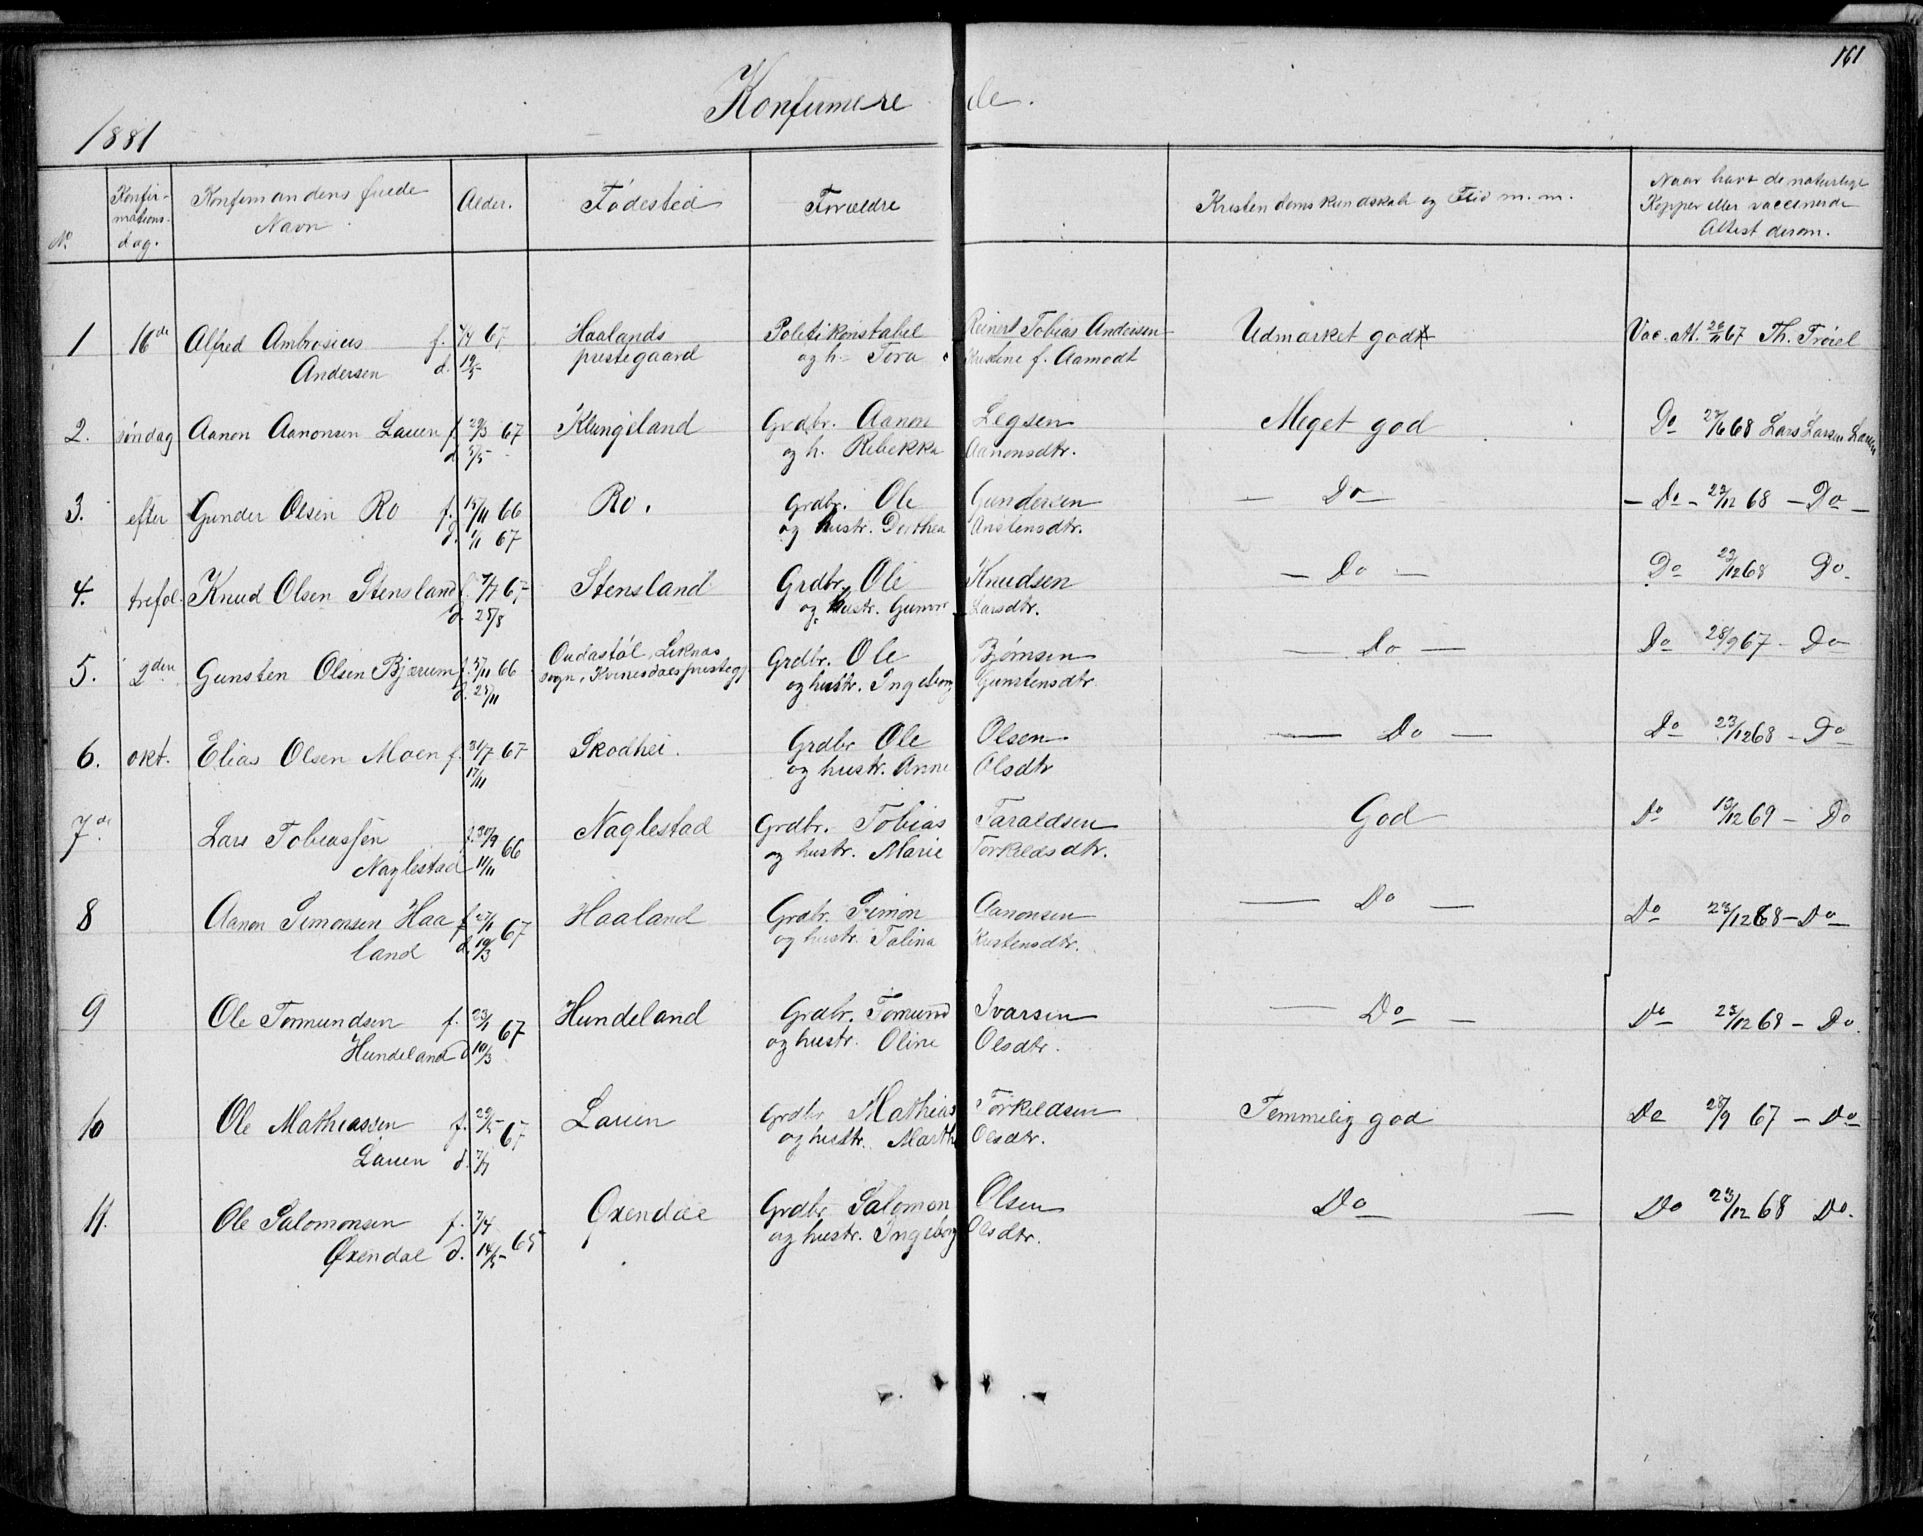 161
Konfirmerede.
1881
No
Konfir-
mations-
dag.
Konfirmandens fulde
Navn
Alder.
Fødested
Forældre
Kristendomskundskab og Flid m. m.
Naar havt de naturlige
Kopper eller vaccinerede
Attest derom.
1 16de Alfred Ambrosius f. 7/4 67, Haalands Politikonstabel Reinert Tobias Andersen Udmærket godt Vac. att. 67 Th. Trøiel
Andersen d. 19/5 prestegaard og h. Tora Kristine f. Aamodt
2. søndag Aanon Aanonsen Lauen f. 29/3 67 Klungeland Grdbr. Aanon Legsen Meget god Do 27/6 68 Lars Larsen Lauen
d. 5/5 og h. Rebekka Aanonsdtr.
3. efter Gunder Olsen Ro f. 15/11 66 Ro. Grdbr. Ole Gundersen — Do — — Do — 23/12 68 — Do —
d. 1/1 67 og hustr. Dorthea Anstensdtr.
4. trefol. Knud Olsen Stensland f. 7/7 67, Stensland Grdbr. Ole Knudsen — Do — Do 23/12 68 Do.
d. 25/8 og hustr. Gunvor Larsdtr.
5. 2den Gunsten Olsen Bjærum f. 5/11 66 Oudastøl, Liknes Grdbr. Ole Bjørnsen — Do — Do 28/9 67 — Do
d. 25/11 sogn, Kvinesdals presteg. og hustr. Ingeborg Gunstensdtr.
6. okt. Elias Olsen Moen f. 31/7 67 Skodhei. Grdbr Ole Olsen — Do — Do 23/12 68 — Do
17/11 og hustr. Anne Olsdtr
7de. Lars Tobiassen f. 30/9 66 Naglestad Grdbr. Tobias Taraldsen God Do 13/12 69 — Do
Naglestad 11/11 og hustr. Marie Torkeldsdtr.
8 Aanon Simonsen Haa f. 27/1 67 Haaland Grdbr. Simon Aanonsen — Do — Do 23/12 68 — Do
land d. 19/3 og hustr. Talina Kristensdtr.
9 Ole Tormundsen f. 23/1 67 Hundeland Grdbr. Tomund Ivarsen — Do — Do 23/12 68 — Do.
Hundeland d. 10/3 og hustr. Oline Olsdtr.
10 Ole Mathiassen f. 29/5 67 Lauen Grdbr Mathias Torkeldsen Temmelig god Do 28/9 67 — Do
Lauen d. 7/7 og hustr. Marth Olsdtr.
11. Ole Salomonsen f. 7/4 65 Øxendal Grdbr Salomon Olsen Do — Do 23/12 68 Do.
Øxendal d. 14/5 og hustr. Ingeborg Olsdtr.